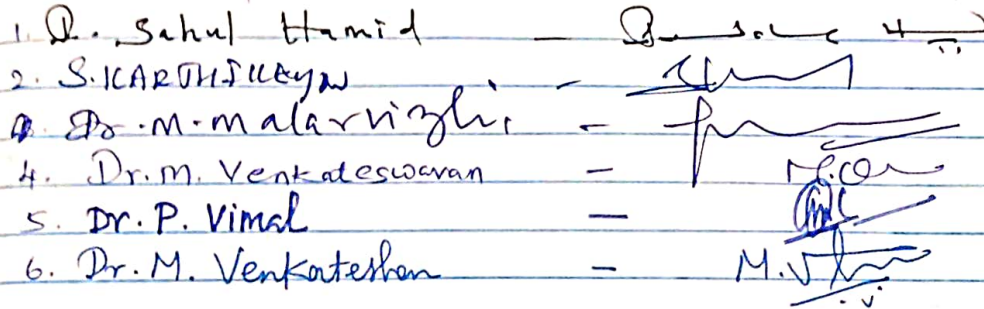 1. D. Sahul Hamid –
2. S. KARTHIKEYN –
Dr. M. malarvizhi, –
4. Dr. M. Venkateswaran –
5. Dr. P. Vimal –
6. Dr. M. Venkateshan – M.V